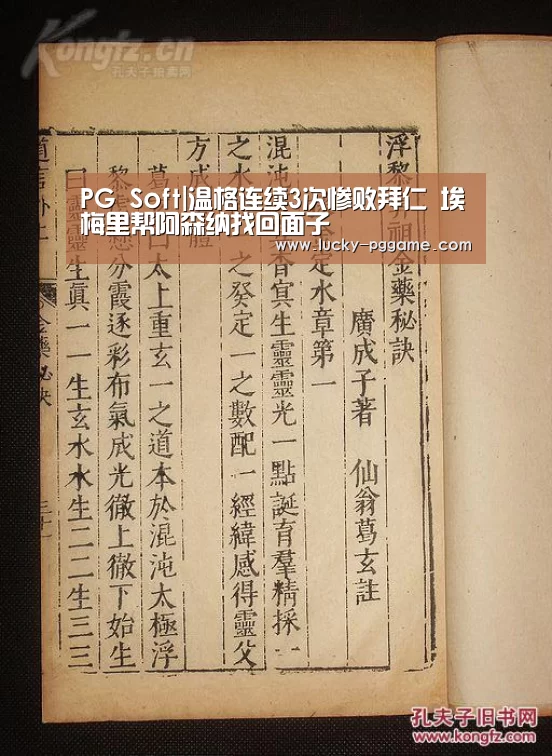 Kongfz.cn
孔夫子拍卖网
PG Soft|温格连续3次惨败拜仁 埃
梅里帮阿森纳找回面子
www.lucky-pggame.com
浮黎
祖金藥秘訣
廣成子著 仙翁葛玄註
定水章第一
混沌
杳冥生靈靈光一點誕育羣精採一
之水
之癸定一之數配一經緯感得靈父
方成
體
葛
曰太上重玄一之道本於混沌太極浮
黎
分霞逐彩布氣成光徹上徹下始生
曰靈靈生眞一一生玄水水生二二生三三
金藥秘訣
三十一
孔夫子旧书网
KONGFZ.COM